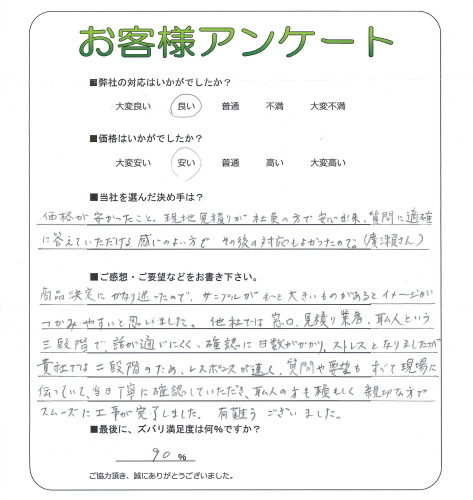 お客様アンケート
■弊社の対応はいかがでしたか？
大変良い 良い 普通 不満 大変不満
■価格はいかがでしたか？
大変安い 安い 普通 高い 大変高い
■当社を選んだ決め手は？
価格が安かったこと、現地見積りが社員の方で安心出来、質問に適確
に答えていただける感じのよい方でその後の対応もよかったので。(貴瀬さん)
■ご感想・ご要望などをお書き下さい。
商品決定にかなり迷ったので、サンプルがもっと大きいものがあるとイメージが
つかみやすいと思いました。他社では窓口、見積り業者、職人という
三段階で、話が通じにくく、確認に日数がかかり、ストレスとなりましたが
貴社では二段階のため、レスポンスが速く、質問や要望もすべて現場に
伝っていて、当日丁寧に確認していただき、職人の方も頼もしく親切な方で
スムーズに工事が完了しました。有難うございました。
■最後に、ズバリ満足度は何%ですか？
90 %
ご協力頂き、誠にありがとうございました。